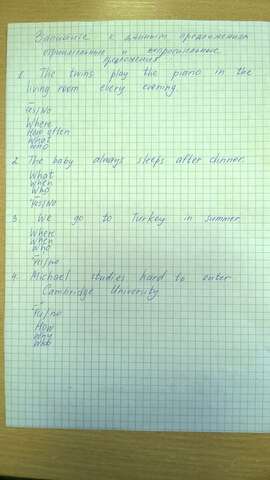 Запишите к данным предложениям
отрицательные и вопросительные
предложения
1. The twins play the piano in the
living room every evening.
–
Yes/No
Where
How often
What
Who
2. The baby always sleeps after dinner.
What
When
Who
–
Yes/No
3. We go to Turkey in summer
Where
When
Who
–
Yes/no
4. Michael studies hard to enter
Cambridge University.
–
Yes/no
How
Why
Who